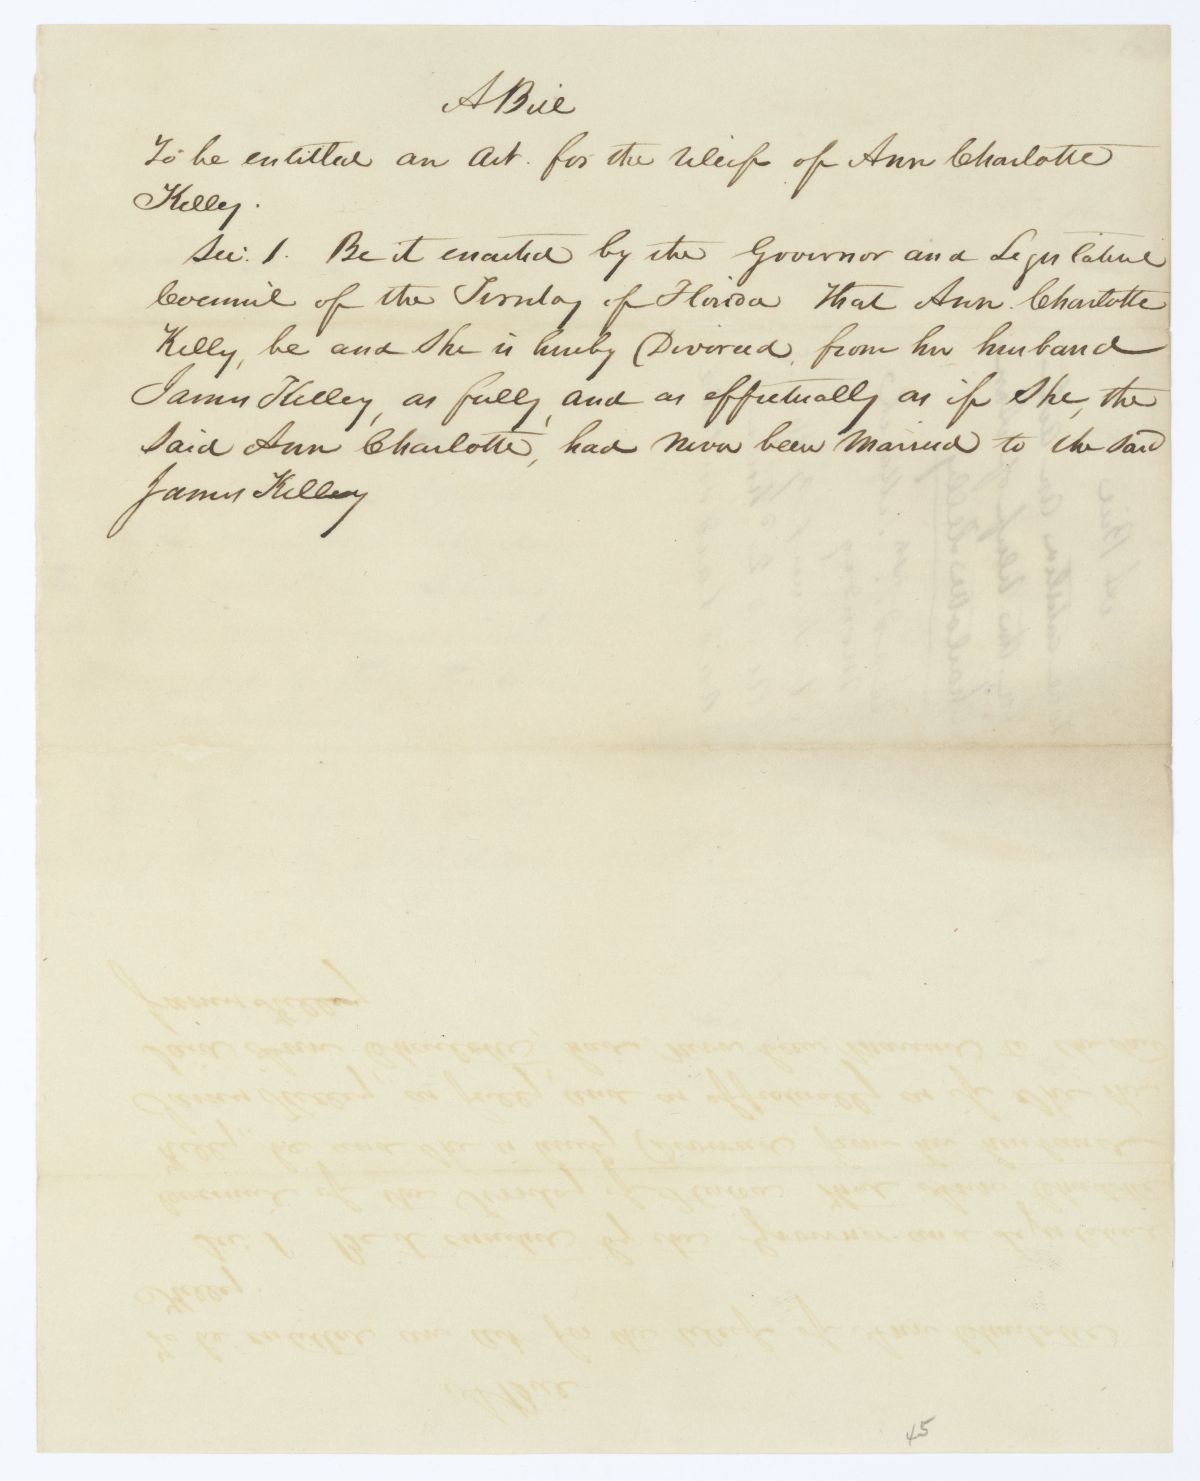 A Bill
To be entitled an Act. for the releif of Ann Charlotte
Kelley.
Sec. 1. Be it enacted by the Governor and Legislative
Council of the Territory of Florida That Ann Charlotte
Kelly, be and She is hereby Divorced, from her husband
James Kelley, as fully, and as effectually as if She, the
Said Ann Charlotte, had never been Married to the said
James Kelley
45